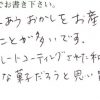 でお書き下さい。
しあう おかしをお産
ことが多いです。
レートコーティングされた和
な菓だろうと思い